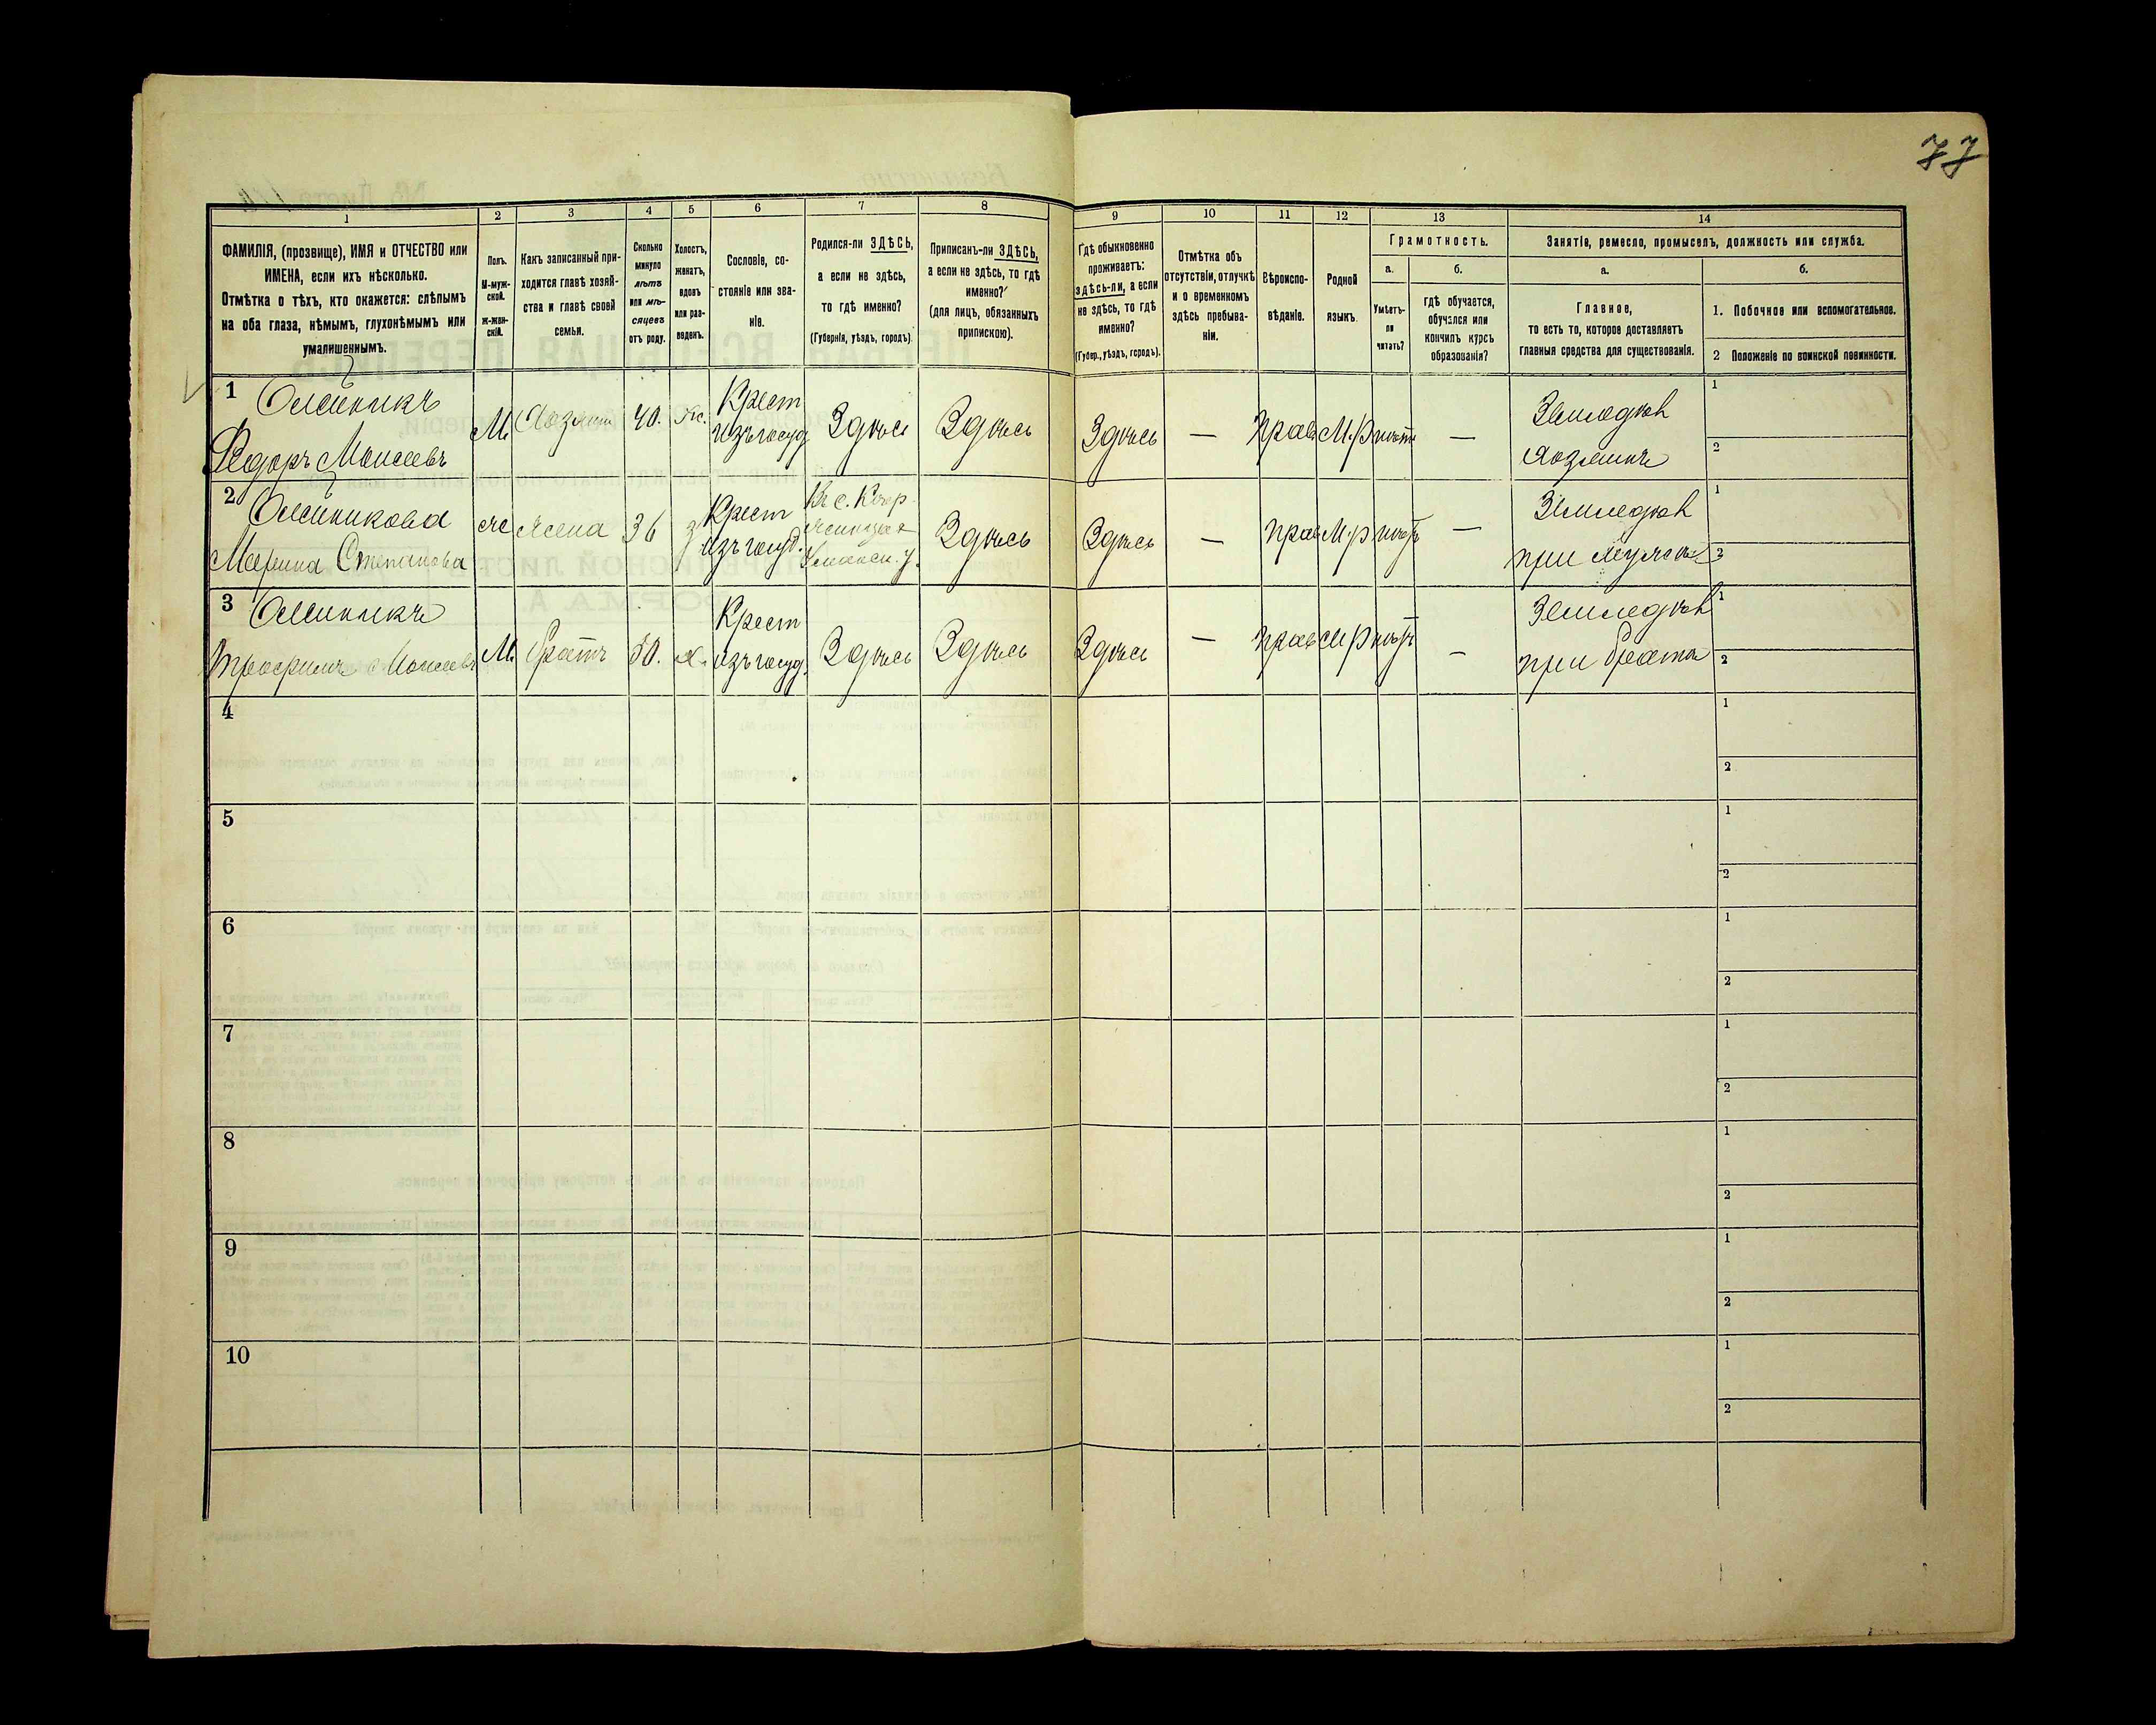 77
1 2 3 4 5 6 7 8 9 10 11 12 13 14
ФАМИЛІЯ, (прозвище), ИМЯ и ОТЧЕСТВО или
ИМЕНА, если ихъ нѣсколько.
Отмѣтка о тѣхъ, кто окажется: слѣпымъ
на оба глаза, нѣмымъ, глухонѣмымъ или
умалишеннымъ.
Полъ.
М-муж-
ской.
ж-жен-
скій.
Какъ записанный при-
ходится главѣ хозяй-
ства и главѣ своей
семьи.
Сколько
минуло
лѣтъ
или мѣ-
сяцевъ
отъ роду.
Холостъ,
женатъ,
вдовъ
или раз-
веденъ.
Сословіе, со-
стояніе или зва-
ніе.
Родился-ли ЗДѢСЬ,
а если не здѣсь,
то гдѣ именно?
(Губернія, уѣздъ, городъ)
Приписанъ-ли ЗДѢСЬ,
а если не здѣсь, то гдѣ
именно?
(для лицъ, обязанныхъ
припискою).
Гдѣ обыкновенно
проживаетъ:
здѣсь-ли, а если
не здѣсь, то гдѣ
именно?
(Губер., уѣздъ, городъ).
Отмѣтка объ
отсутствіи, отлучкѣ
и о временномъ
здѣсь пребыва-
ніи.
Вѣроиспо-
вѣданіе.
Родной
языкъ.
Грамотность.
а.
Умѣетъ-
ли
читать?
б.
гдѣ обучается,
обучался или
кончилъ курсъ
образованія?
Занятіе, ремесло, промыселъ, должность или служба.
а.
Главное,
то есть то, которое доставляетъ
главныя средства для существованія.
б.
1. Побочное или вспомогательное.
2 Положеніе по воинской повинности.
1
Олейникъ
Федоръ Моисеевъ
М.
Хозяинъ
40.
ж.
Крест
изъ госуд
Здѣсь
Здѣсь
Здѣсь
—
прав
М.р
нѣтъ
—
Земледѣл
хозяинъ
1
2
2
Олейникова
Марина Степанова
ж
жена
36
з
Крест
изъ госуд.
Уманск. у.
Здѣсь
Здѣсь
—
прав
М.р
нѣтъ
—
Земледѣл
при мужѣ
1
2
3
Олейникъ
Трофимъ Моисеевъ
М.
братъ
30.
х.
Крест
изъ госуд.
Здѣсь
Здѣсь
Здѣсь
—
прав
М.р
нѣтъ
—
Земледѣл
при братѣ
1
2
4
1
2
5
1
2
6
1
2
7
1
2
8
1
2
9
1
2
10
1
2